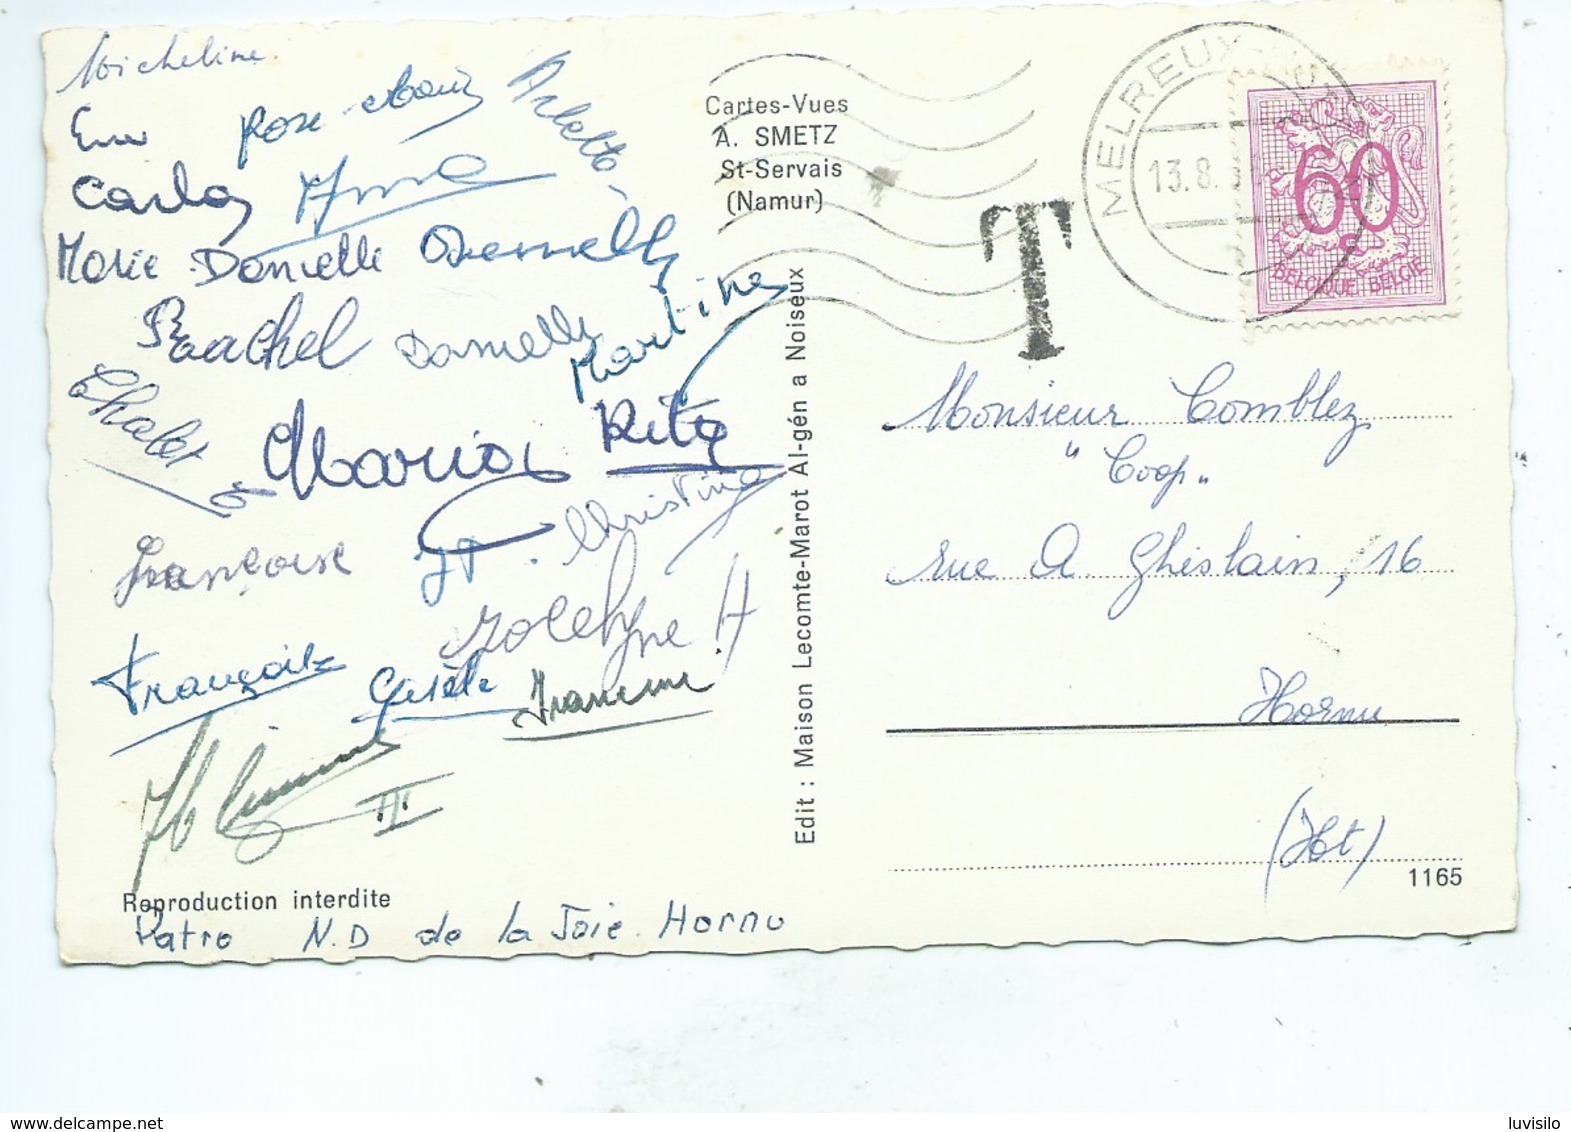 Micheline.
Rose-Marie
Arlette
Carla
Anne
Marie-Danielle
Rachel
Danielle
Martine
Chalet
Maria
Rita
Christine
Françoise
JP.
Jocelyne H
Françoise
Gisèle
Francine
III
Reproduction interdite
Patro N.D de la Joie. Hornu
Cartes-Vues
A. SMETZ
St-Servais
(Namur)
Edit : Maison Lecomte-Marot Al-gén a Noiseux
T
MELREUX-HOTTON
13.8.
60
BELGIQUE BELGIË
Monsieur Comblez
"Coop"
rue A Ghislain, 16
Hornu
(Ht)
1165
www.delcampe.net
luvisilo